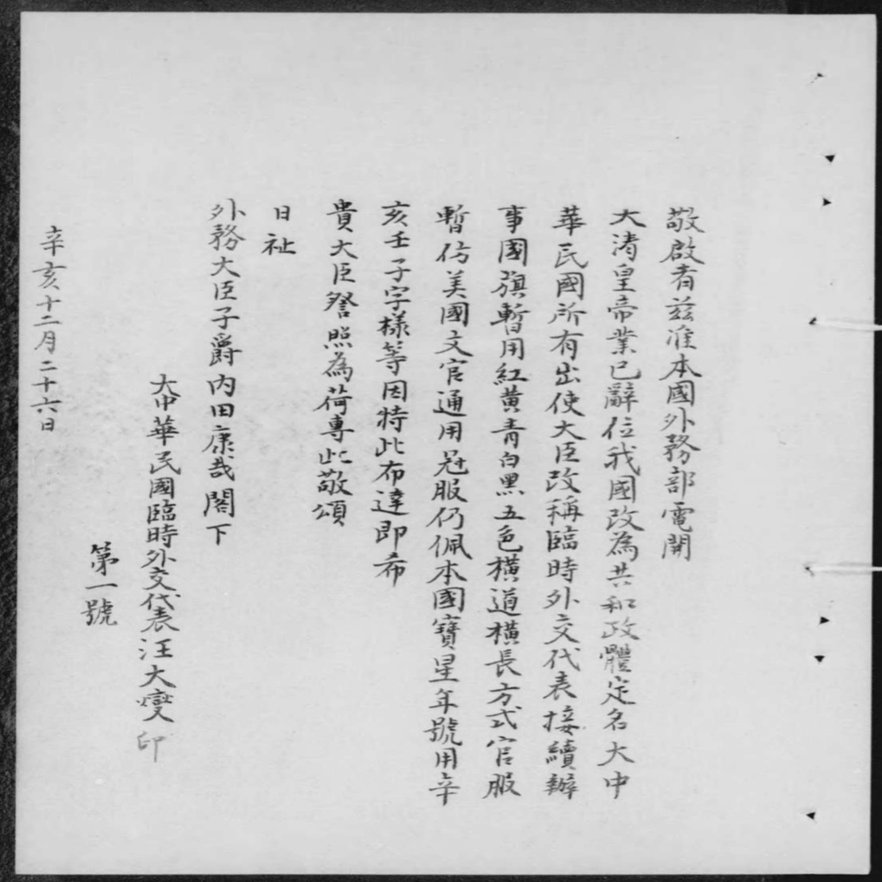 敬啟者茲准本國外務部電開
大清皇帝業已辭位我國改為共和政體定名大中
華民國所有出使大臣改稱臨時外交代表接續辦
事國旗暫用紅黃青白黑五色橫道橫長方式官服
暫仿美國文官通用冠服仍佩本國寶星年號用辛
亥壬子字樣等因特此布達即希
貴大臣詧照為荷專此敬頌
日祉
外務大臣子爵內田康哉閣下
大中華民國臨時外交代表汪大燮印
第一號
辛亥十二月二十六日